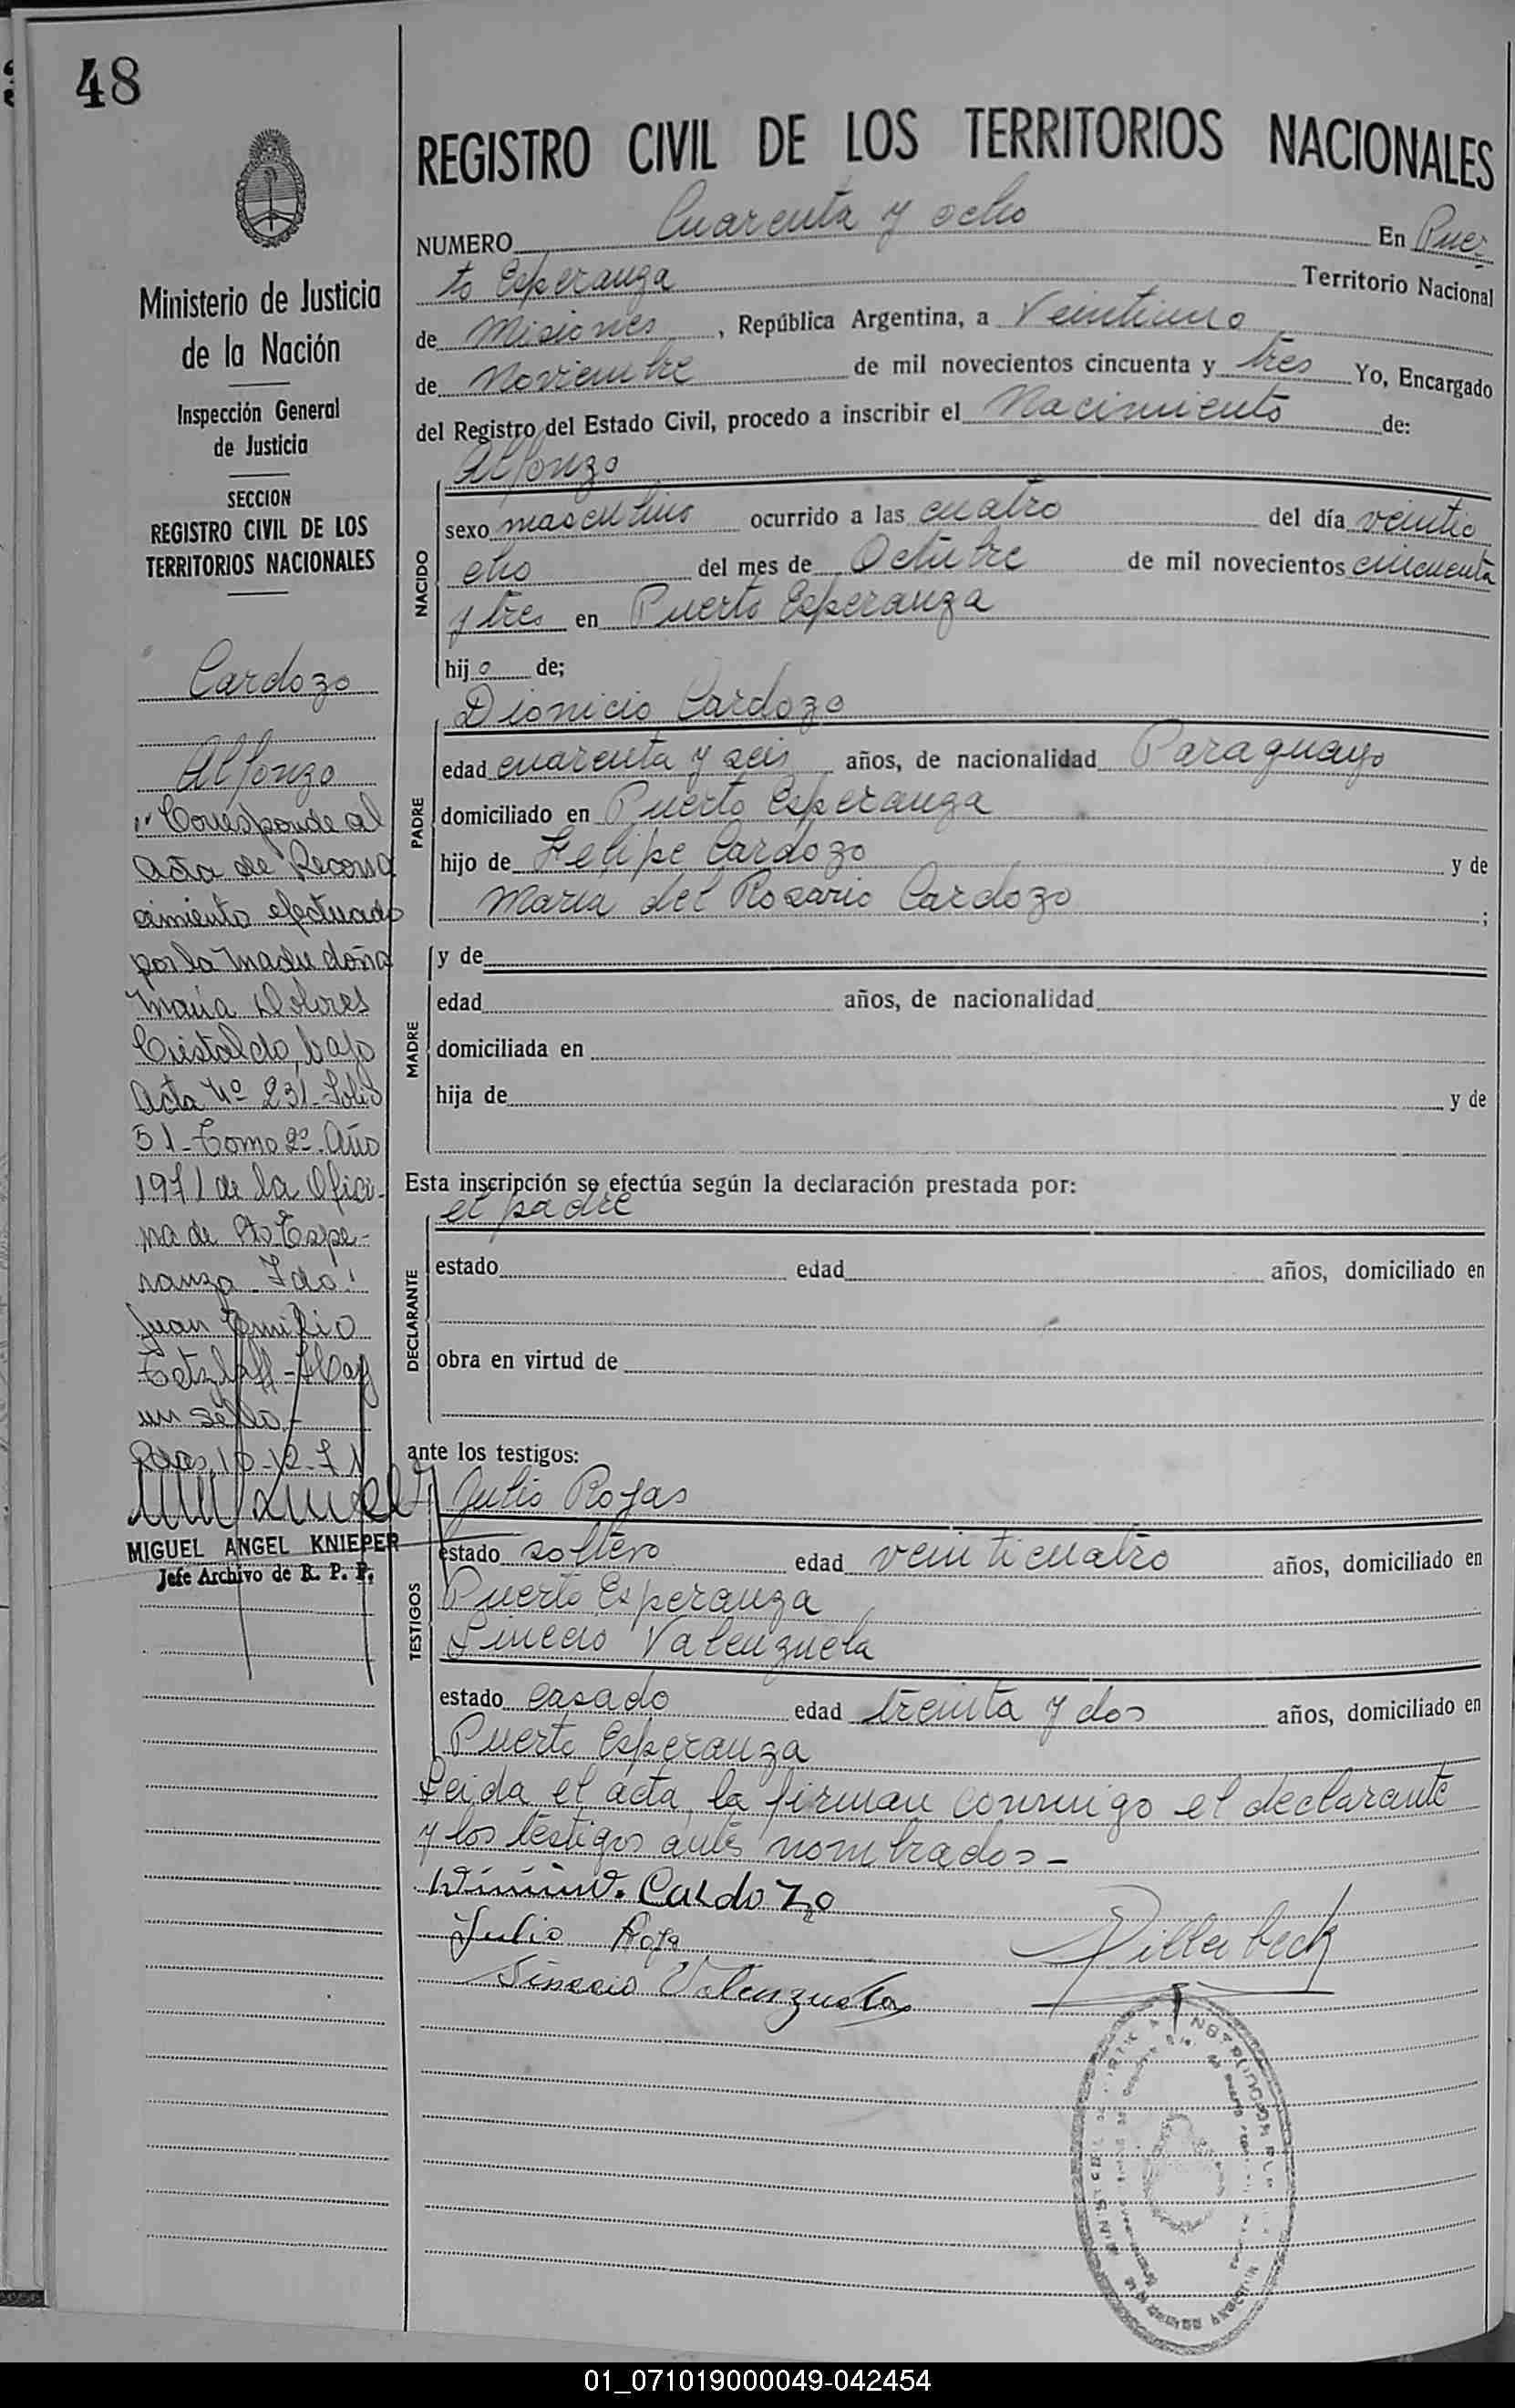 48
Ministerio de Justicia
de la Nación
Inspección General
de Justicia
SECCION
REGISTRO CIVIL DE LOS
TERRITORIOS NACIONALES
Cardozo
Alfonzo
"Corresponde al
Acta de Recono
cimiento efectuado
por la Madre doña
María Dolores
Cristaldo, bajo
Acta Nº 231-Folio
51-Tomo 2º-Año
1971 de la Ofici-
na de Pto Espe-
ranza. Fdo:
Juan Emilio
Tetzlaff-Hay
un sello.-
10-12-71
MIGUEL ANGEL KNIEPER
Jefe Archivo de R. P. P.
REGISTRO CIVIL DE LOS TERRITORIOS NACIONALES
NUMERO Cuarenta y ocho En Puer-
to Esperanza Territorio Nacional
de Misiones, República Argentina, a Veintiuno
de Noviembre de mil novecientos cincuenta y tres Yo, Encargado
del Registro del Estado Civil, procedo a inscribir el Nacimiento de:
NACIDO
Alfonzo
sexo masculino ocurrido a las cuatro del día veintio
cho del mes de Octubre de mil novecientos cincuenta
y tres en Puerto Esperanza
hijo de;
PADRE
Dionicio Cardozo
edad cuarenta y seis años, de nacionalidad Paraguayo
domiciliado en Puerto Esperanza
hijo de Felipe Cardozo y de
Maria del Rosario Cardozo;
MADRE
y de
edad años, de nacionalidad
domiciliada en
hija de y de
Esta inscripción se efectúa según la declaración prestada por:
DECLARANTE
el padre
estado edad años, domiciliado en
obra en virtud de
ante los testigos:
TESTIGOS
Julio Rojas
estado soltero edad veinticuatro años, domiciliado en
Puerto Esperanza
Sinecio Valenzuela
estado casado edad treinta y dos años, domiciliado en
Puerto Esperanza
Leida el acta, la firman conmigo el declarante
y los testigos antes nombrados-
Cardozo
Julio Roja
Sinecio Valenzuela
01_071019000049-042454